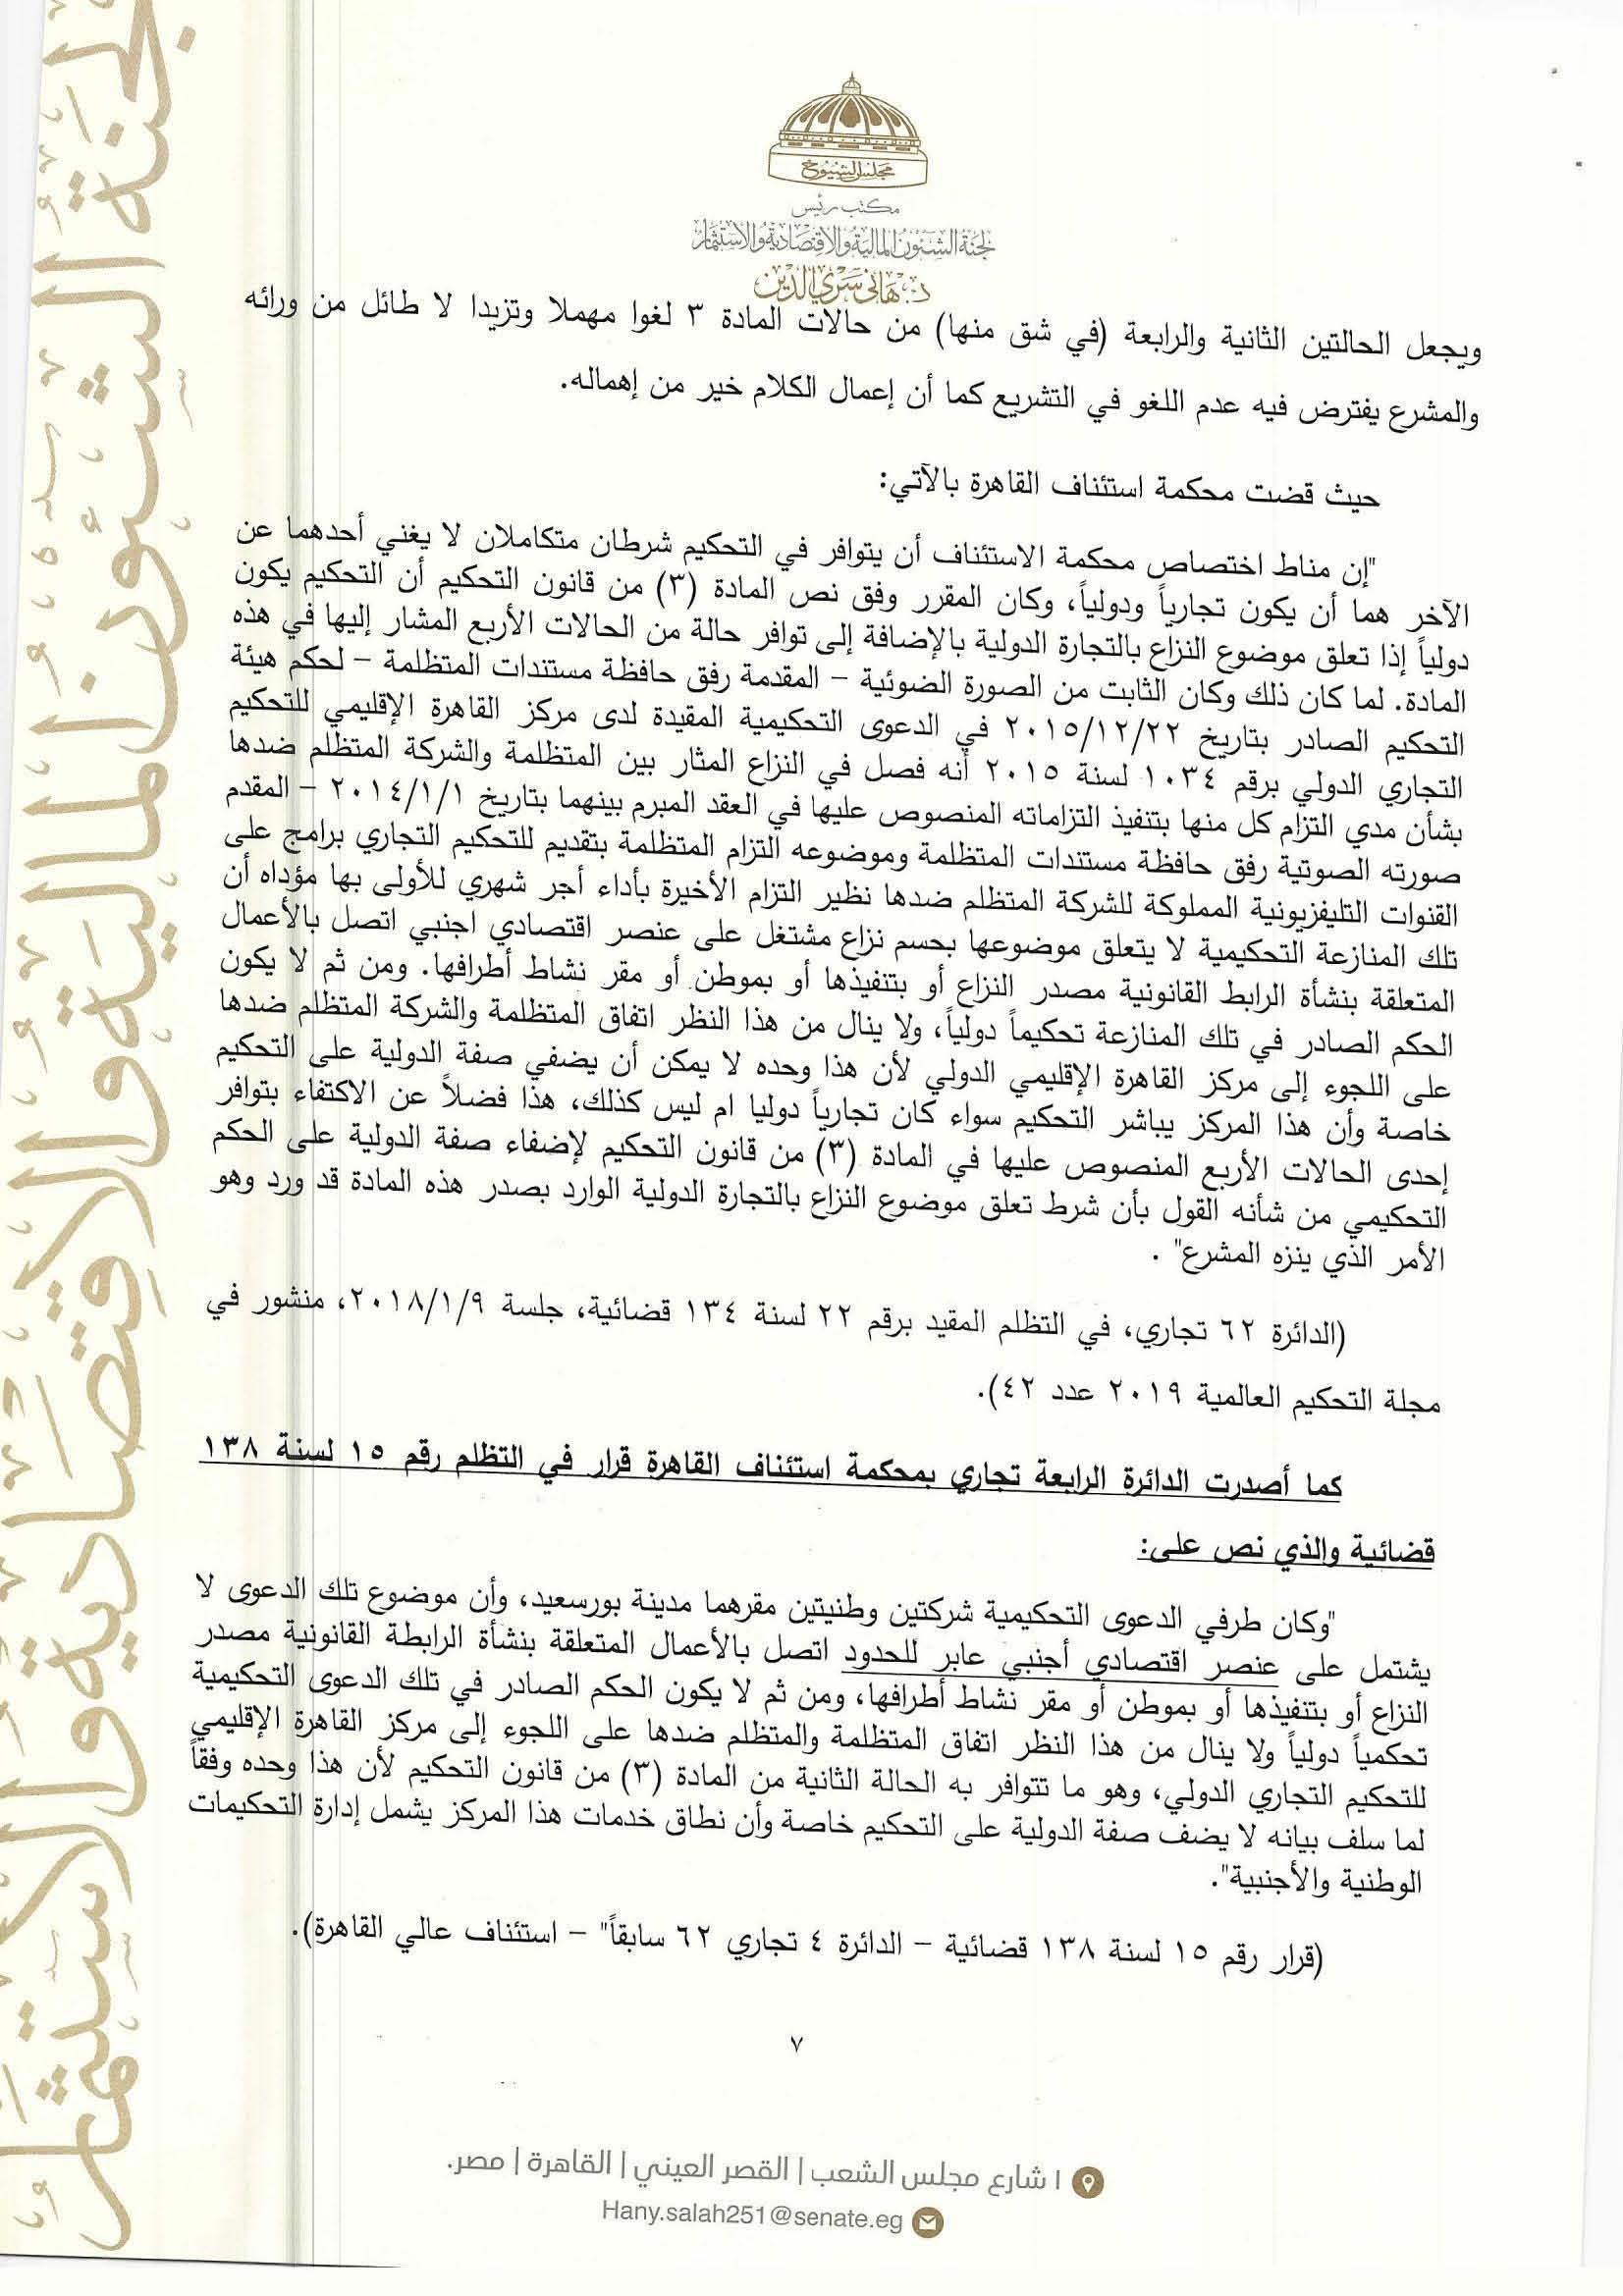 مجلس الشيوخ
مكتب رئيس
لجنة الشئون المالية والاقتصادية والاستثمار
د. هاني سري الدين
ويجعل الحالتين الثانية والرابعة (في شق منها) من حالات المادة ٣ لغوا مهملا وتزيدا لا طائل من ورائه
والمشرع يفترض فيه عدم اللغو في التشريع كما أن إعمال الكلام خير من إهماله.
حيث قضت محكمة استئناف القاهرة بالآتي:
"إن مناط اختصاص محكمة الاستئناف أن يتوافر في التحكيم شرطان متكاملان لا يغني أحدهما عن
الآخر هما أن يكون تجارياً ودولياً، وكان المقرر وفق نص المادة (٣) من قانون التحكيم أن التحكيم يكون
دولياً إذا تعلق موضوع النزاع بالتجارة الدولية بالإضافة إلى توافر حالة من الحالات الأربع المشار إليها في هذه
المادة. لما كان ذلك وكان الثابت من الصورة الضوئية – المقدمة رفق حافظة مستندات المتظلمة – لحكم هيئة
التحكيم الصادر بتاريخ ٢٠١٥/١٢/٢٢ في الدعوى التحكيمية المقيدة لدى مركز القاهرة الإقليمي للتحكيم
التجاري الدولي برقم ١٠٣٤ لسنة ٢٠١٥ أنه فصل في النزاع المثار بين المتظلمة والشركة المتظلم ضدها
بشأن مدي التزام كل منها بتنفيذ التزاماته المنصوص عليها في العقد المبرم بينهما بتاريخ ٢٠١٤/١/١ – المقدم
صورته الصوتية رفق حافظة مستندات المتظلمة وموضوعه التزام المتظلمة بتقديم للتحكيم التجاري برامج على
القنوات التليفزيونية المملوكة للشركة المتظلم ضدها نظير التزام الأخيرة بأداء أجر شهري للأولى بها مؤداه أن
تلك المنازعة التحكيمية لا يتعلق موضوعها بحسم نزاع مشتغل على عنصر اقتصادي اجنبي اتصل بالأعمال
المتعلقة بنشأة الرابط القانونية مصدر النزاع أو بتنفيذها أو بموطن أو مقر نشاط أطرافها. ومن ثم لا يكون
الحكم الصادر في تلك المنازعة تحكيماً دولياً، ولا ينال من هذا النظر اتفاق المتظلمة والشركة المتظلم ضدها
على اللجوء إلى مركز القاهرة الإقليمي الدولي لأن هذا وحده لا يمكن أن يضفي صفة الدولية على التحكيم
خاصة وأن هذا المركز يباشر التحكيم سواء كان تجارياً دوليا ام ليس كذلك، هذا فضلاً عن الاكتفاء بتوافر
إحدى الحالات الأربع المنصوص عليها في المادة (٣) من قانون التحكيم لإضفاء صفة الدولية على الحكم
التحكيمي من شأنه القول بأن شرط تعلق موضوع النزاع بالتجارة الدولية الوارد بصدر هذه المادة قد ورد وهو
الأمر الذي ينزه المشرع" .
(الدائرة ٦٢ تجاري، في التظلم المقيد برقم ٢٢ لسنة ١٣٤ قضائية، جلسة ٢٠١٨/١/٩، منشور في
مجلة التحكيم العالمية ٢٠١٩ عدد ٤٢).
كما أصدرت الدائرة الرابعة تجاري بمحكمة استئناف القاهرة قرار في التظلم رقم ١٥ لسنة ١٣٨
قضائية والذي نص على:
"وكان طرفي الدعوى التحكيمية شركتين وطنيتين مقرهما مدينة بورسعيد، وأن موضوع تلك الدعوى لا
يشتمل على عنصر اقتصادي أجنبي عابر للحدود اتصل بالأعمال المتعلقة بنشأة الرابطة القانونية مصدر
النزاع أو بتنفيذها أو بموطن أو مقر نشاط أطرافها، ومن ثم لا يكون الحكم الصادر في تلك الدعوى التحكيمية
تحكمياً دولياً ولا ينال من هذا النظر اتفاق المتظلمة والمتظلم ضدها على اللجوء إلى مركز القاهرة الإقليمي
للتحكيم التجاري الدولي، وهو ما تتوافر به الحالة الثانية من المادة (٣) من قانون التحكيم لأن هذا وحده وفقاً
لما سلف بيانه لا يضف صفة الدولية على التحكيم خاصة وأن نطاق خدمات هذا المركز يشمل إدارة التحكيمات
الوطنية والأجنبية".
(قرار رقم ١٥ لسنة ١٣٨ قضائية – الدائرة ٤ تجاري ٦٢ سابقاً" – استئناف عالي القاهرة).
٧
١ شارع مجلس الشعب | القصر العيني | القاهرة | مصر.
Hany.salah251@senate.eg
لجنة الشئون المالية والاقتصادية والاستثمار